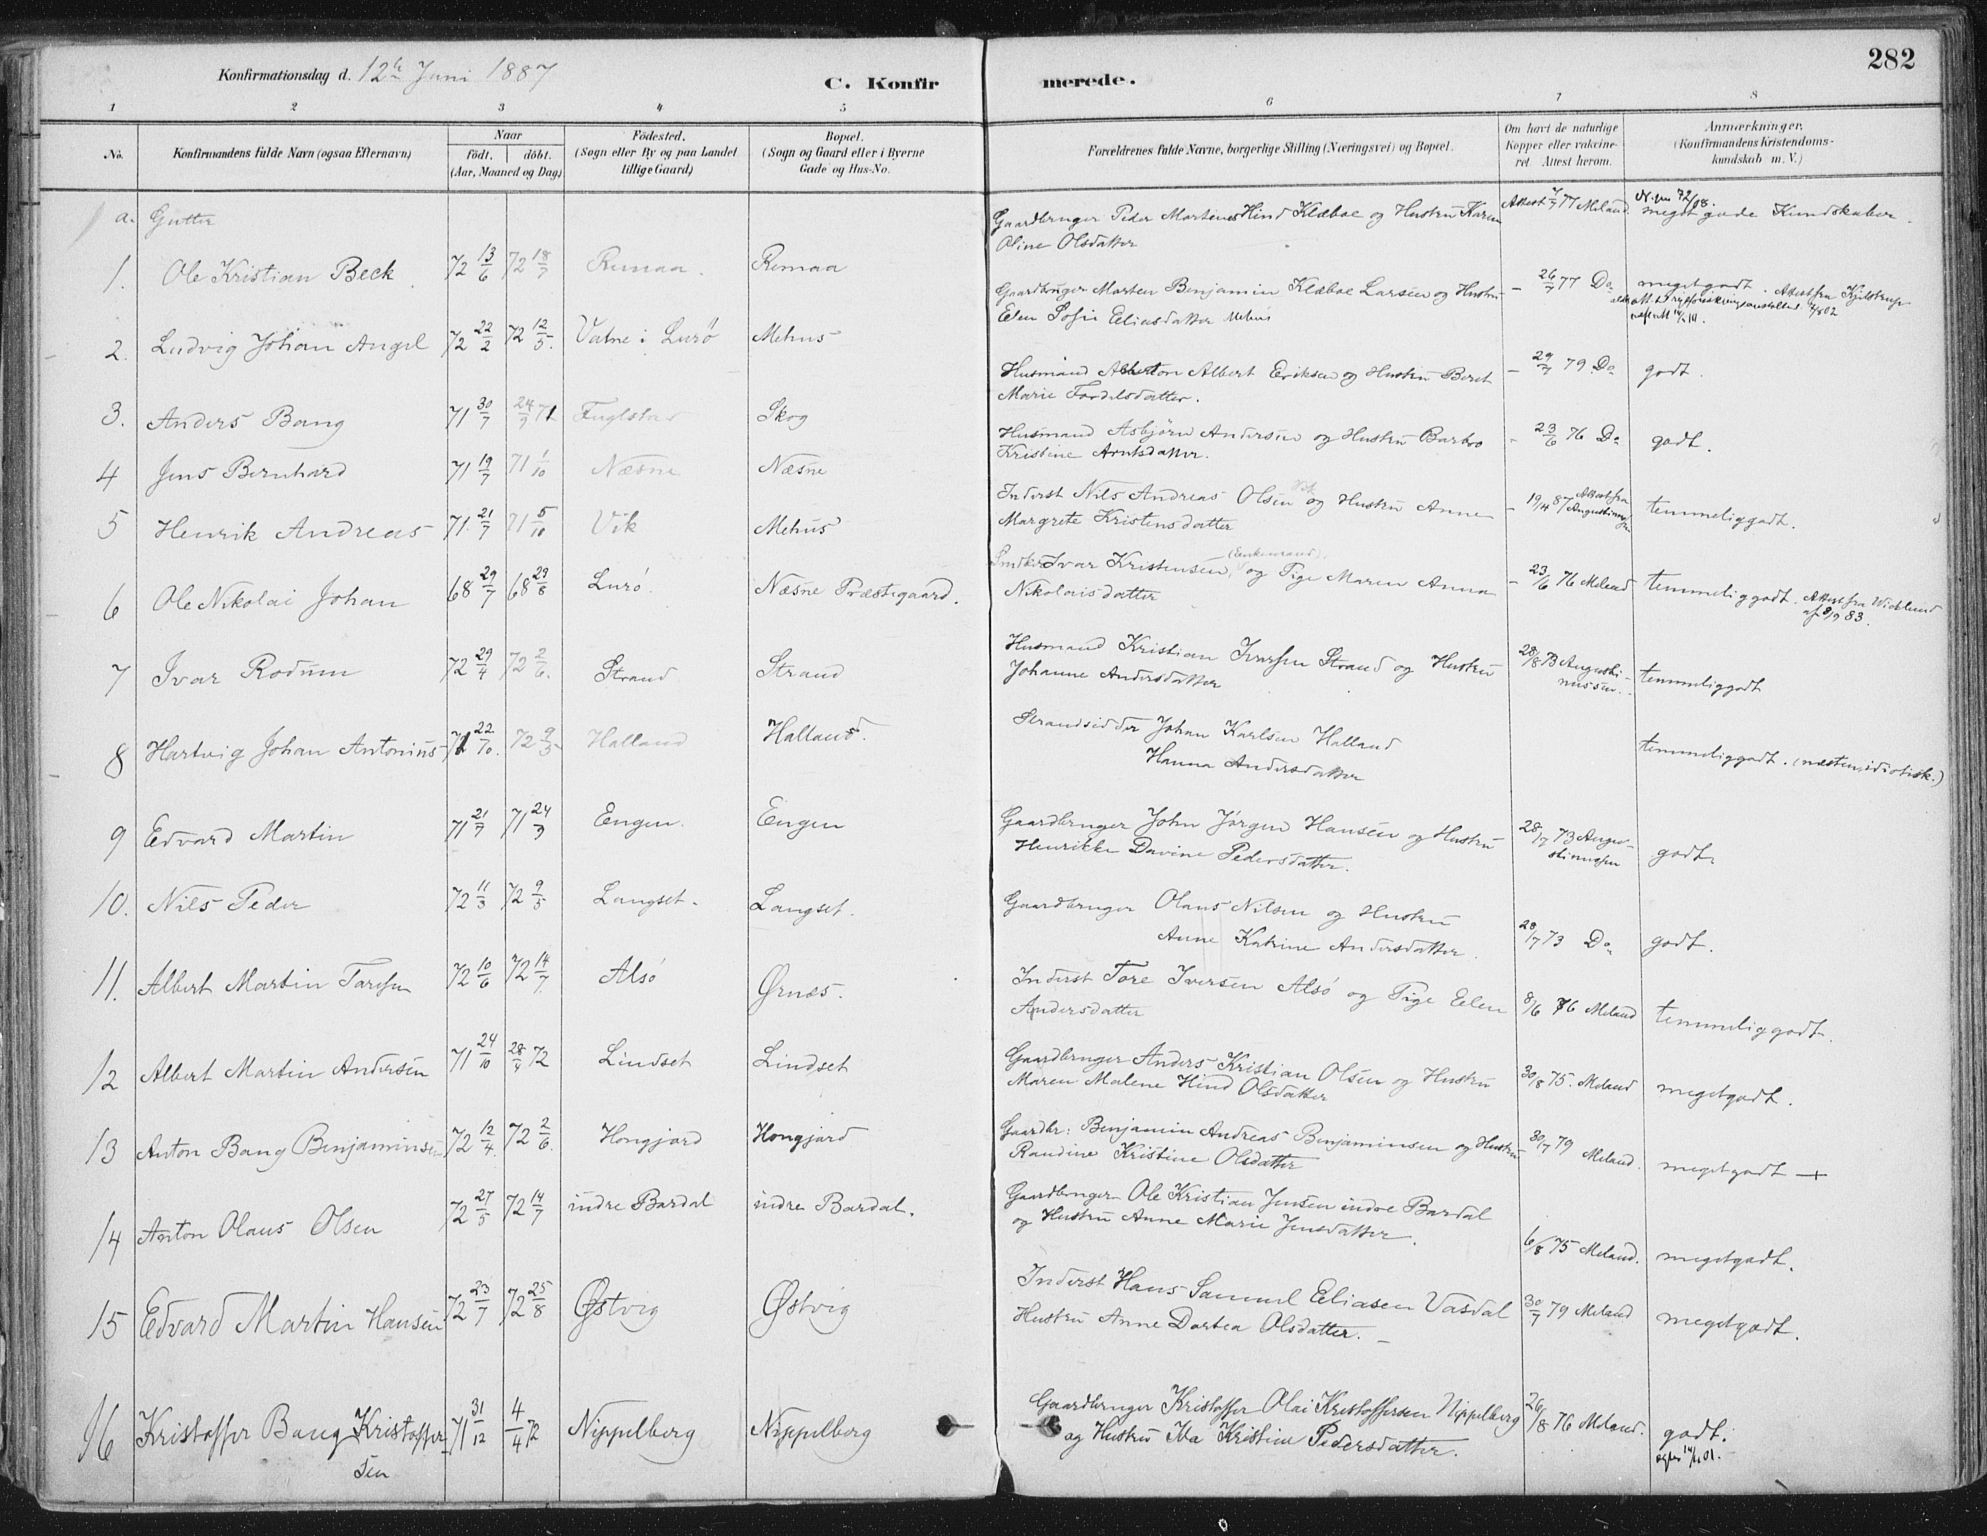 282
Konfirmationsdag d. 12te Juni 1887
C. Konfirmerede.
1 2 3 4 5 6 7 8
No. Konfirmandens fulde Navn (ogsaa Efternavn) Naar født. døbt. (Aar, Maaned og Dag) Födested. (Sogn eller By og paa Landet tillige Gaard) Bopæl. (Sogn og Gaard eller i Byerne Gade og Hus-No. Forældrenes fulde Navne, borgerlige Stilling (Næringsvei) og Bopæl. Om havt de naturlige Kopper eller vakcineret. Attest herom. Anmærkninger. (Konfirmandens Kristendomskundskab m. V.)
a. Gutter
1. Ole Kristian Beck 72 13/6 72 18/7 Remaa. Remaa Gaardbruger Peder Martenes Hind Klæboe og Hustru Karen Attest 7/7 77 Meland. meget gode Kundskaber.
Oline Olsdatter
2. Ludvig Johan Angel 72 22/2 72 12/5. Vatne i Lurø Mehus Gaardbruger Marten Benjamin Klæboe Larsen og Hustru – 26/7 77 Do meget godt. Attest fra Kjelstrup
Elen Sofie Eliasdatter Mehus
3. Anders Bang 71 30/7 24/9 71 Fuglstad Skog Husmand Albert Eriksen og Hustru Beret – 29/7 79 Do godt.
Marie Tordelsdatter.
4 Jens Bernhard 71 19/7 71 1/10 Næsne Næsne Husmand Asbjørn Andersen og Hustru Barbro – 23/6 76 Do godt.
Kristine Arntsdatter.
5 Henrik Andreas 71. 21/7 71 5/10 Vik Mehus Inderst Nils Andreas Olsen og Hustru Anne – 19/4 87 Attest fra temmeliggodt.
Margrete Kristensdatter
6 Ole Nikolai Johan 68 29/7 68 29/8 Lurø. Næsne Præstegaard. Ivar Kristensen, (Enkemand) og Pige Maren Anna – 23/6 76 Meland temmeliggodt. Attest fra Wicklund
Nikolaisdatter af 8/9 83.
7 Ivar Rodum 72 29/4 72 2/6. Strand Strand Husmand Kristian Ivarsen Strand og Hustru 28/8 73 Augustinussen. temmeliggodt
Johanne Andersdatter
8 Hartvig Johan Antonius 71 22/10. 72 9/5 Halland Halland. Strandsidder Johan Karlsen Halland temmeliggodt. (næsten idiotisk.)
Hanna Andersdatter
9 Edvard Martin 71 21/7 71 24/9 Engen. Engen Gaardbruger John Jörgen Hansen og Hustru 28/7 73 Augustinussen godt.
Henrikke Davine Pedersdatter.
10. Nils Peder 72 11/3 72 9/5 Langset. Langset. Gaardbruger Olaus Nilsen og Hustru 28/7 73 Do godt.
Anne Katrine Andersdatter.
11. Albert Martin Toresen 72 10/6 72 14/7 Alsø Ørnæs. Inderst Tore Iversen Alsø og Pige Elen 8/6 76 Meland temmeliggodt.
Andersdatter
12 Albert Martin Andersen 71 24/10 28/4 72 Lindset Lindset Gaardbruger Anders Kristian Olsen og Hustru 30/8 75. Meland megetgodt.
Maren Malene Hind Olsdatter
13 Anton Bang Benjaminsen 72 12/4 72 2/6. Hongjord Hongjord Gaardbr: Benjamin Andreas Benjaminsen og Hustru 30/7 79 Meland. megetgodt +
Randine Kristine Olsdatter
14 Anton Olaus Olsen 72 27/5 72 14/7 indre Bardal indre Bardal. Gaardbruger Ole Kristian Jensen indre Bardal
og Hustru Anne Marie Jensdatter. 6/8 75 Meland. megetgodt.
15 Edvard Martin Hansen 72 23/7 72 25/8 Østvig Østvig Inderst Hans Samuel Eliasen Vasdal 30/7 79 Meland megetgodt.
Hustru Anne Dortea Olsdatter. –
16 Kristoffer Bang Kristoffersen 71 31/12 4/4 72 Nippelberg Nippelberg Gaardbruger Kristoffer Olai Kristoffersen Nippelberg 26/8 76 Meland. godt.
og Hustru Ida Kristine Pedersdatter.